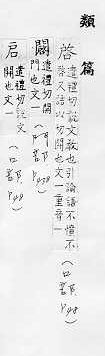 類篇
啓 遣禮切說文敎也引論語不憤不
啓又詰以切開也文一重音一
(口部 p48)
闙 遣禮切開
門也文一
(門部 p438)
启 遣禮切說文
開也文一
(口部 p48)